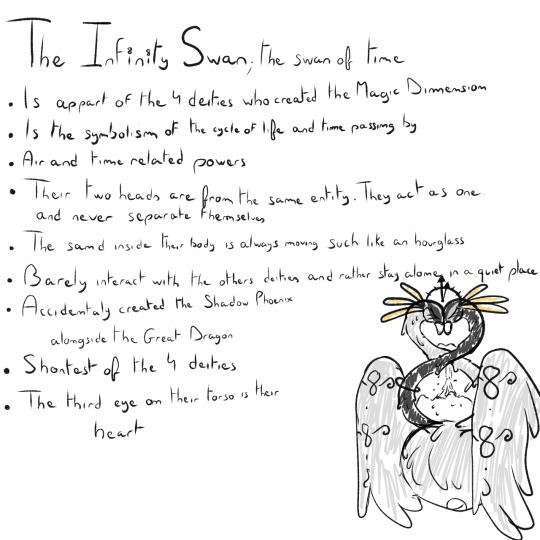 The Infinity Swan, the swan of time
• Is appart of the 4 deities who created the Magic Dimension
• Is the symbolism of the cycle of life and time passing by
• Air and time related powers
• Their two heads are from the same entity. They act as one
and never separate themselves
• The sand inside their body is always moving such like an hourglass
• Barely interact with the others deities and rather stay alone, in a quiet place
• Accidentaly created the Shadow Phoenix
alongside the Great Dragon
• Shortest of the 4 deities
• The third eye on their torso is their
heart